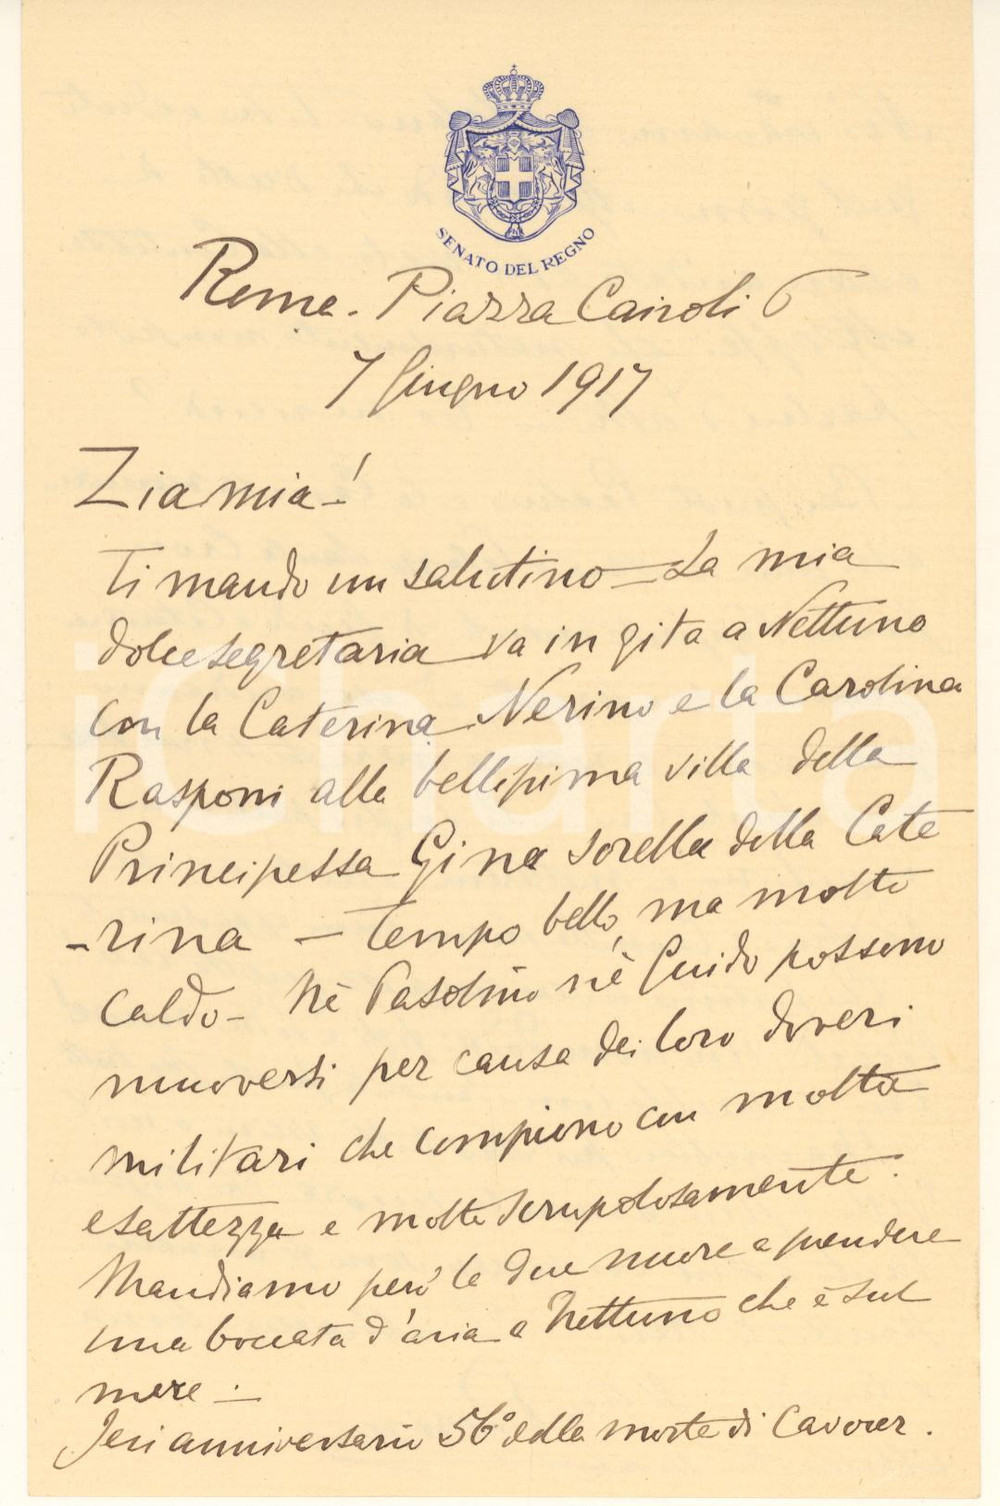 SENATO DEL REGNO
Roma. Piazza Cairoli 6
7 Giugno 1917
Zia mia!
Ti mando un salutino = La mia
dolce segretaria va in gita a Nettuno
con la Caterina Nerino e la Carolina
Rasponi alla bellissima villa della
Principessa Gina sorella della Cate
-rina — Tempo bello, ma molto
caldo - Nè Pasolino nè Guido possono
muoversi per causa dei loro doveri
militari che compiono con molta
esattezza e molto scrupolosamente.
Mandiamo però le due nuore a prendere
una boccata d'aria a Nettuno che è sul
mare —
Jeri anniversario 56° della morte di Cavour.
iCharta